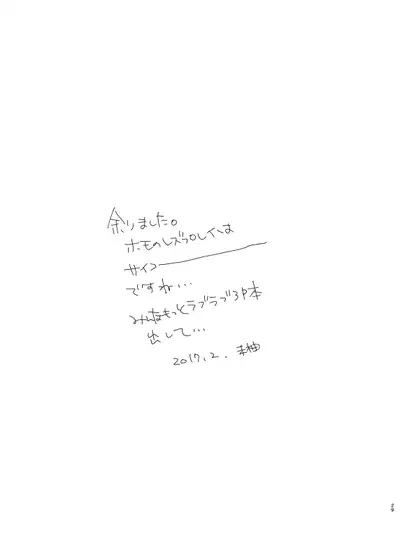 余りました。
ホモのレズプレイは
サイコ――――――
ですね…
みんなもっとラブラブ3P本
出して…
2017.2.